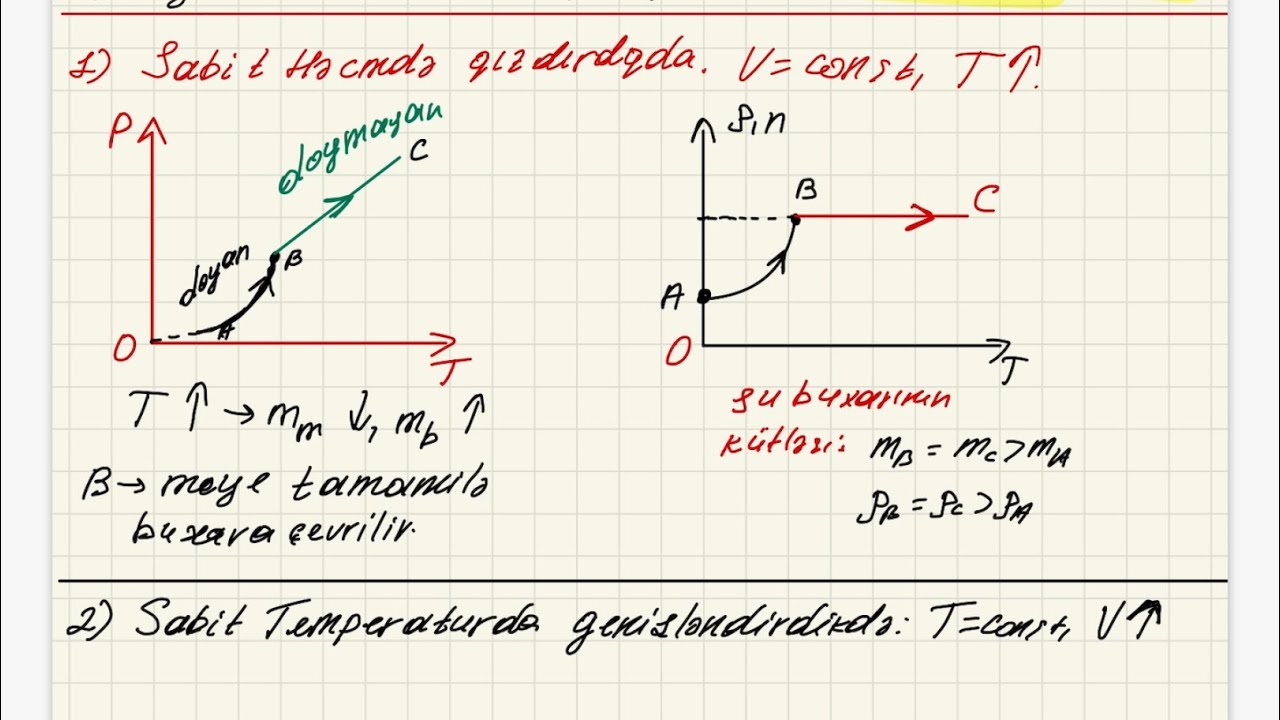 1) Sabit Həcmdə qızdırdqda. V = const, T ↑.
P
doymayan
C
doyan
B
A
O
T
ρ, n
B
C
A
O
T
T ↑ → mm ↓, mb ↑
B → maye tamamilə
buxara çevrilir.
su buxarının
kütləsi: mB = mC > mA
ρB = ρC > ρA
2) Sabit Temperaturda genişləndirdikdə: T = const, V ↑